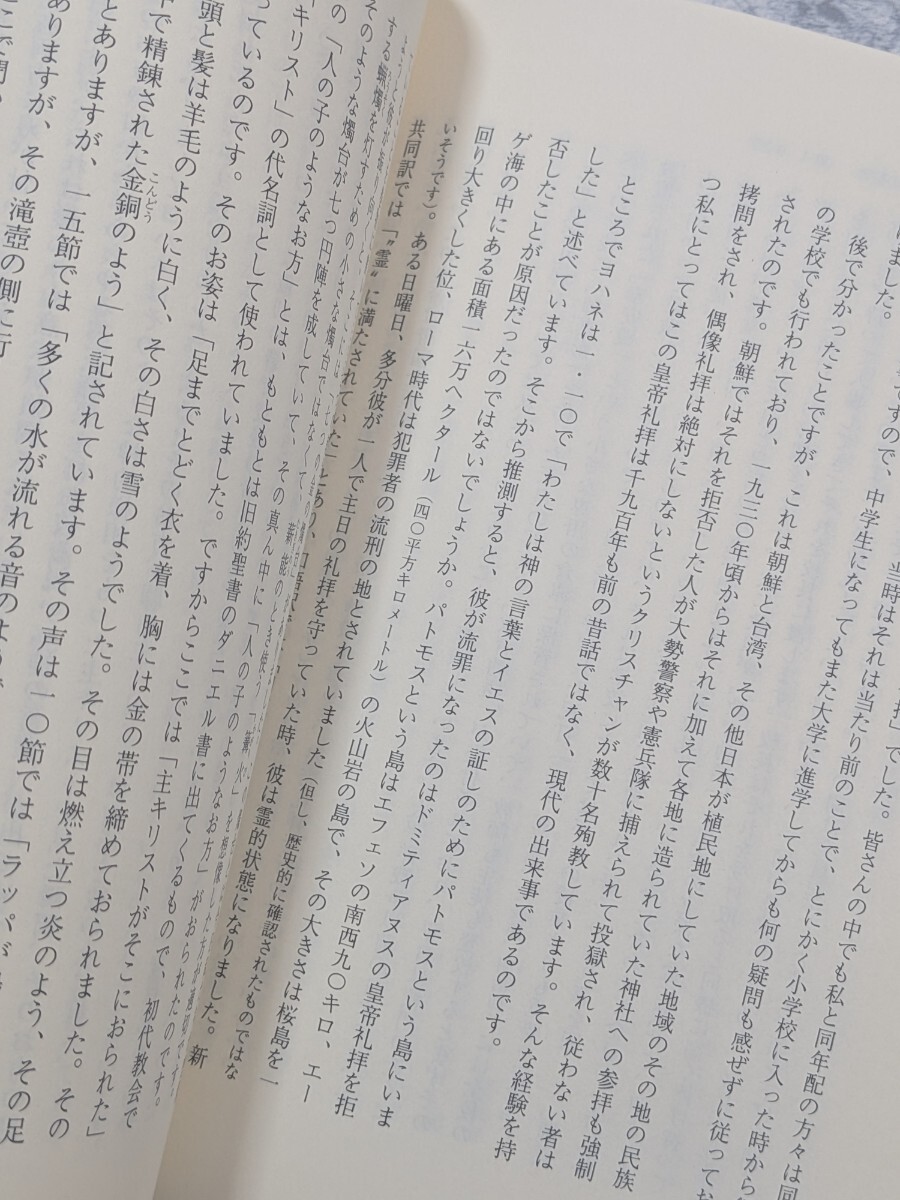 けました。
ですので、当時はそれは当たり前のことで、とにかく小学校に入った時から
中学生になってもまた大学に進学してからも何の疑問も感ぜずに従ってお
拝」でした。皆さんの中でも私と同年配の方々は同
後で分かったことですが、これは朝鮮と台湾、その他日本が植民地にしていた地域のその地の民族
の学校でも行われており、一九三〇年頃からはそれに加えて各地に造られていた神社への参拝も強制
されたのです。朝鮮ではそれを拒否した人が大勢警察や憲兵隊に捕えられて投獄され、従わない者は
拷問をされ、偶像礼拝は絶対にしないというクリスチャンが数十名殉教しています。そんな経験を持
つ私にとってはこの皇帝礼拝は千九百年も前の昔話ではなく、現代の出来事であるのです。
ところでヨハネは一・一〇で「わたしは神の言葉とイエスの証しのためにパトモスという島にいま
した」と述べています。そこから推測すると、彼が流罪になったのはドミティアヌスの皇帝礼拝を拒
否したことが原因だったのではないでしょうか。パトモスという島はエフェソの南西九〇キロ、エー
ゲ海の中にある面積一六万ヘクタール（四〇平方キロメートル）の火山岩の島で、その大きさは桜島を一
回り大きくした位、ローマ時代は犯罪者の流刑の地とされていました（但し、歴史的に確認されたものではな
いそうです）。ある日曜日、多分彼が一人で主日の礼拝を守っていた時、彼は霊的状態になりました。新
共同訳では「〝霊〟に満たされていた」とあり、
する蝋燭を灯すための小さな燭台ではなくて、薪能のとき使う「篝火」を想像した方が適切です。
そのような燭台が七つ円陣を成していて、その真ん中に「人の子のようなお方」がおられたのです。
の「人の子のようなお方」とは、もともとは旧約聖書のダニエル書に出てくるもので、初代教会で
キリスト」の代名詞として使われていました。ですからここでは「主キリストがそこにおられた」
っているのです。そのお姿は「足までとどく衣を着、胸には金の帯を締めておられました。その
頭と髪は羊毛のように白く、その白さは雪のようでした。その目は燃え立つ炎のよう、その足
で精錬された金銅のよう」と記されています。その声は一〇節では「ラッパが
こんどう
とありますが、一五節では「多くの水が流れる音のよう
ありますが、その滝壺の側に行